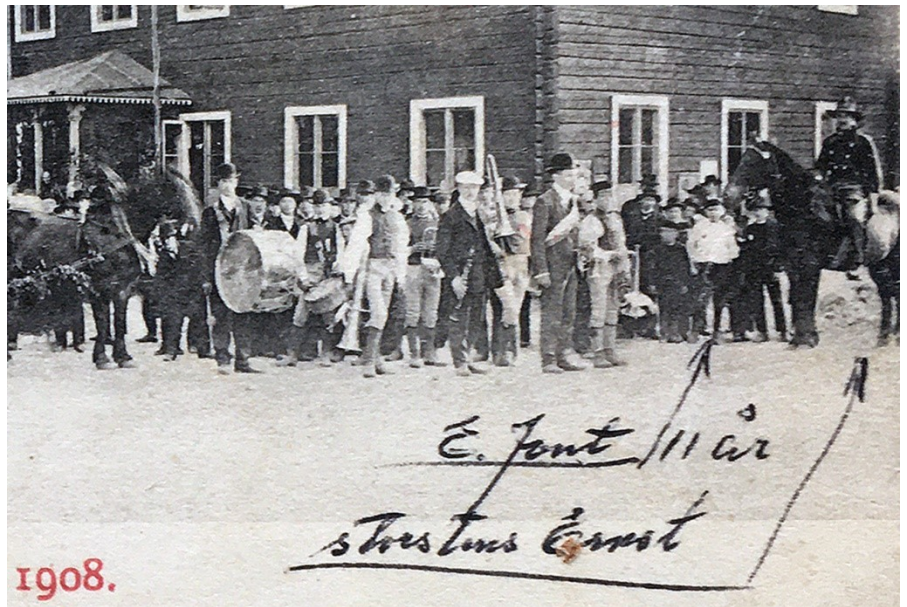 E. Font 11 år
storstens Ernst
1908.